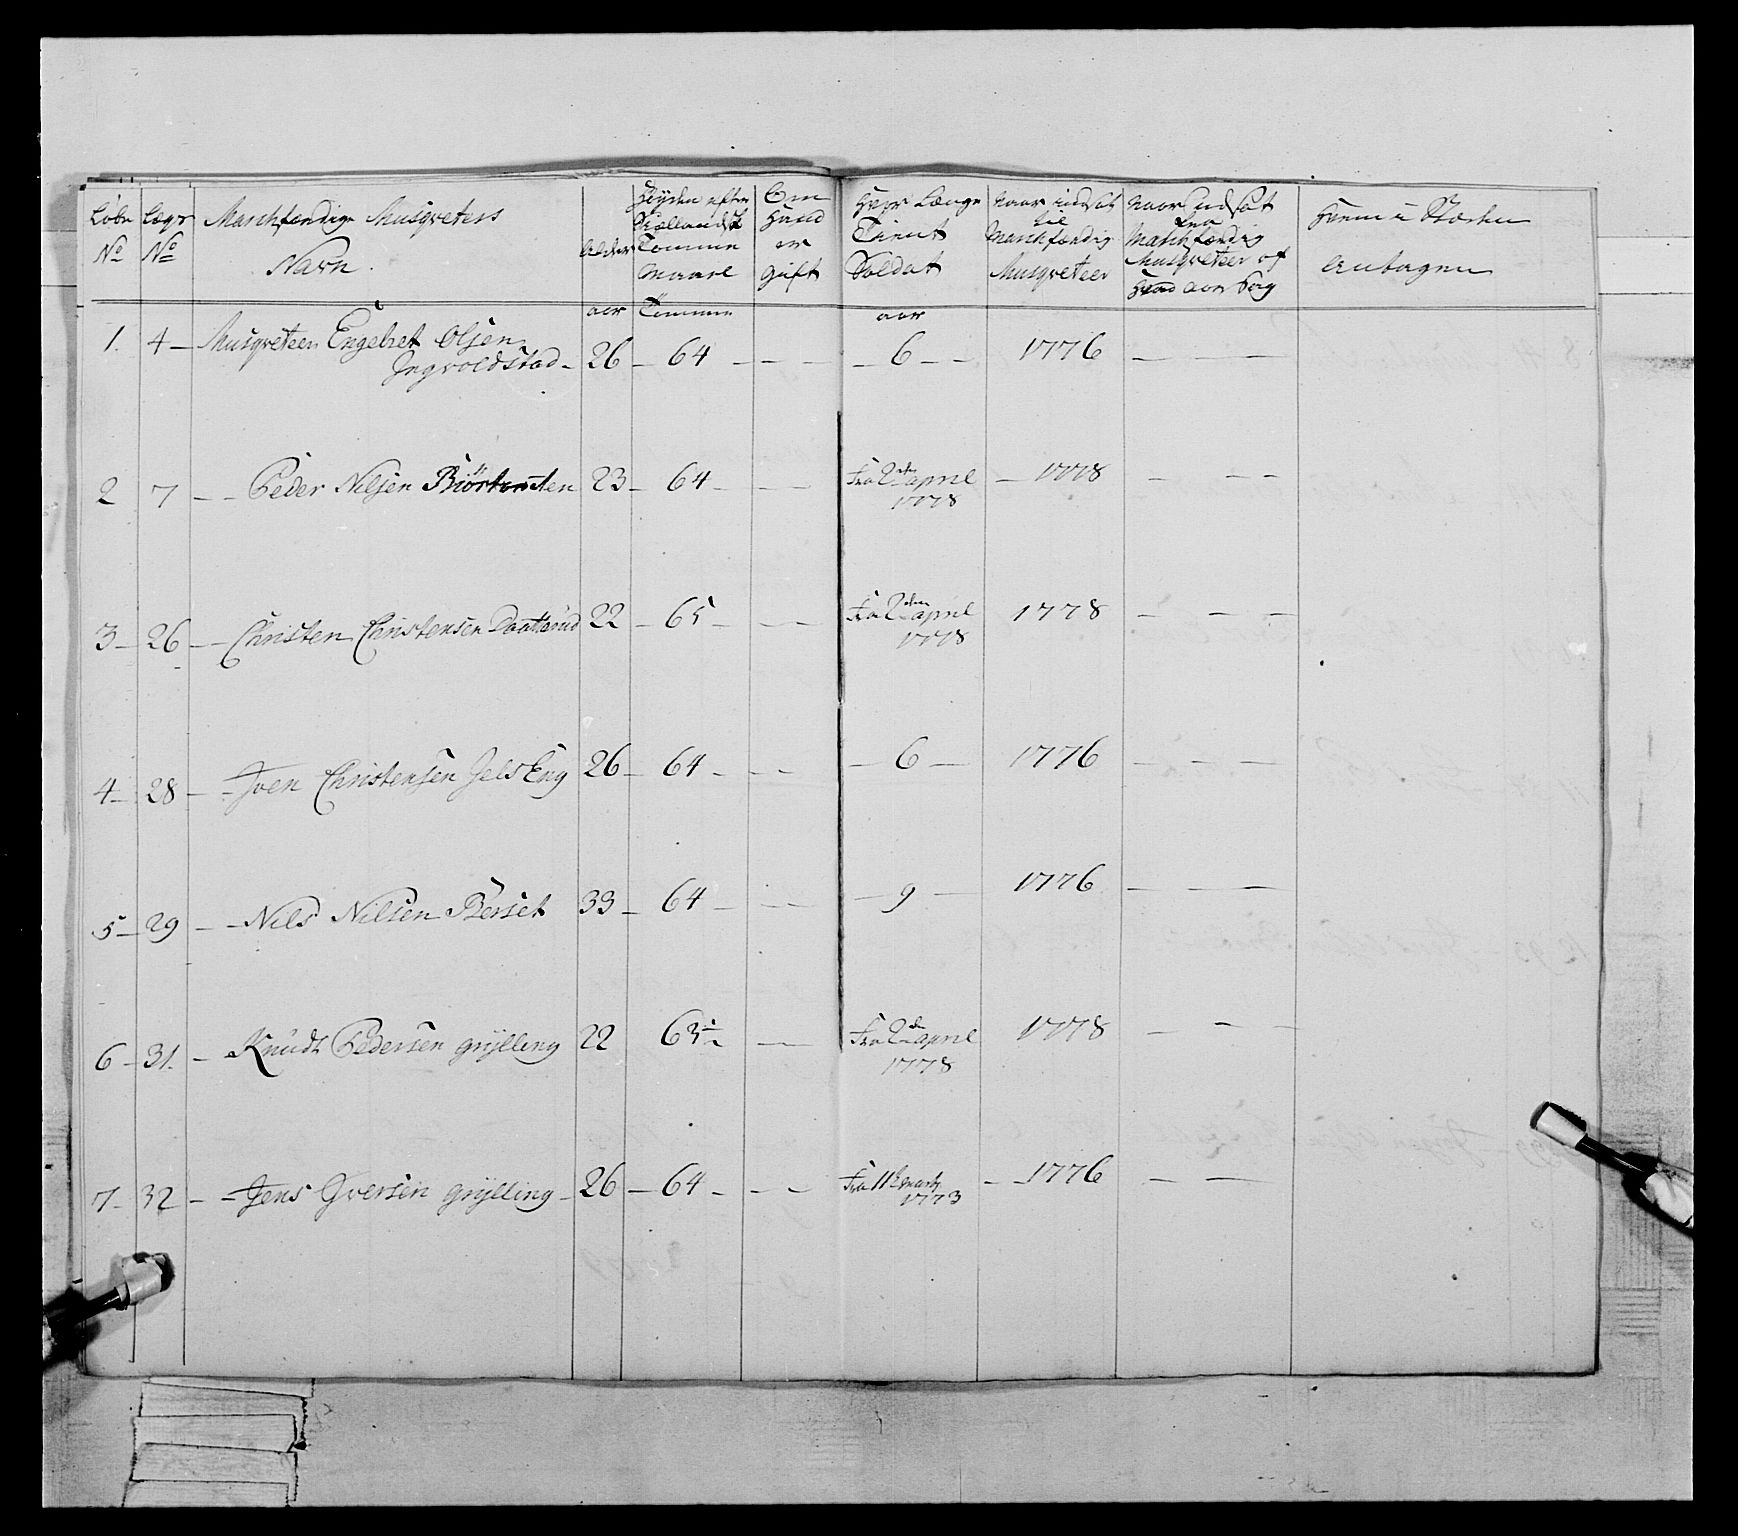 Løbe No
Lægs No
Marchfærdige Musqveters Navn
Alder
Høyden efter Siællandsk Tomme Maael
Om Hand er Gift
Hvor Længe Tient Soldat
Naar indsat til Marchfærdig Musqveteer
Naar udsat fra Marchfærdig Musqveteer
Hvem i Stæden Antagen
aar Tomme aar
1. 4 – Musqveteer Engebret Olsen
Ingvoldstad – 26 – 64 – – – – 6 – – 1776 – – –
2 7 – – Peder Nilsen 23 – 64 – – – Fra 2den april – 1778 – – –
1778
3 – 26 – – Christen Christensen 22 – 65 – – – Fra 2den april 1778 – – –
1778
4 – 28 – – Iven Christensen Jels Eng 26 – 64 – – – – 6 – 1776 – – –
5 – 29 – – Nils Nilsen Berset 33 – 64 – – – – 9 – 1776 – – –
6 – 31. – Knudt Pedersen grÿtting 22 63½ – Fra 2den april 1778 – – –
1778
7 – 32 – – Jens Iversen grÿtting – 26 – 64 – – – Fra 11te marty – 1776 – –
1773